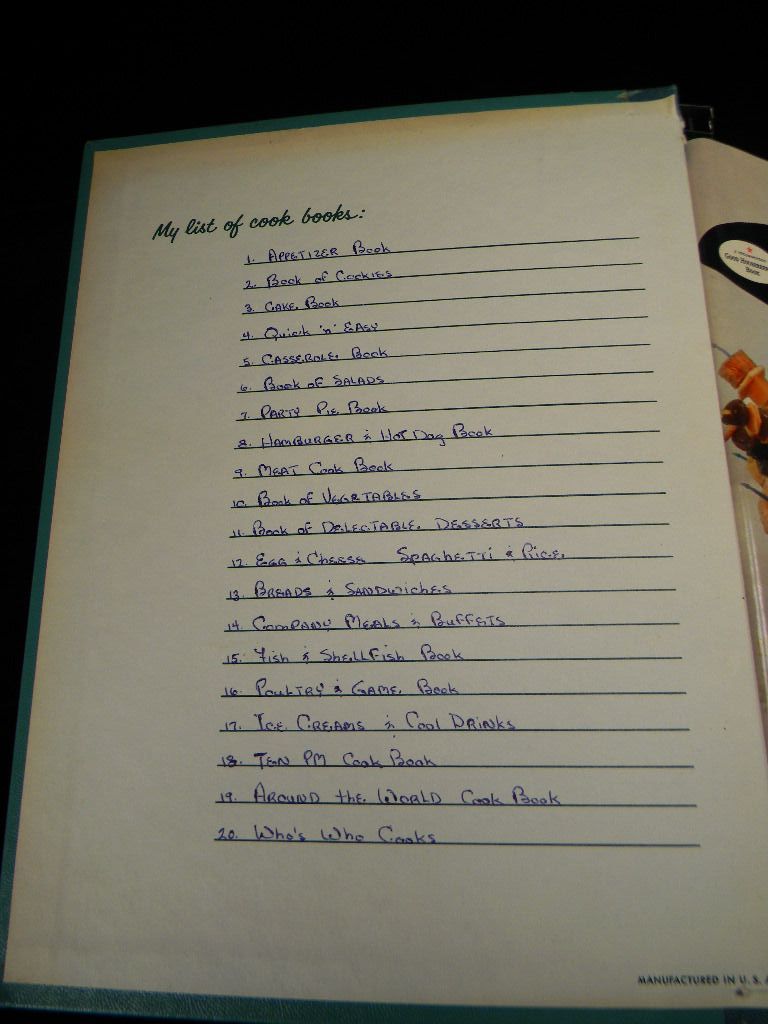 My list of cook books:
1. APPETIZER Book
2. Book of Cookies
3. CAKE Book
4. Quick 'n' EASy
5. CASSEROLE Book
6. Book of SALADS
7. PARTY PIE Book
8. HAMBURGER & Hot Dog Book
9. MEAT Cook Book
10. Book of VEGETABLES
11. Book of DELECTABLE DESSERTS
12. EGG & CHEESE SPAGHETTI & RICE
13. BREADS & SANDWICHES
14. COMPANY MEALS & BUFFETS
15. Fish & ShellFish Book
16. POULTRY & GAME Book
17. ICE CREAMS & Cool DRINKS
18. TEN PM Cook Book
19. AROUND the WORLD Cook Book
20. Who's Who Cooks
GOOD HOUSEKEEPING
BOOK
MANUFACTURED IN U. S. A